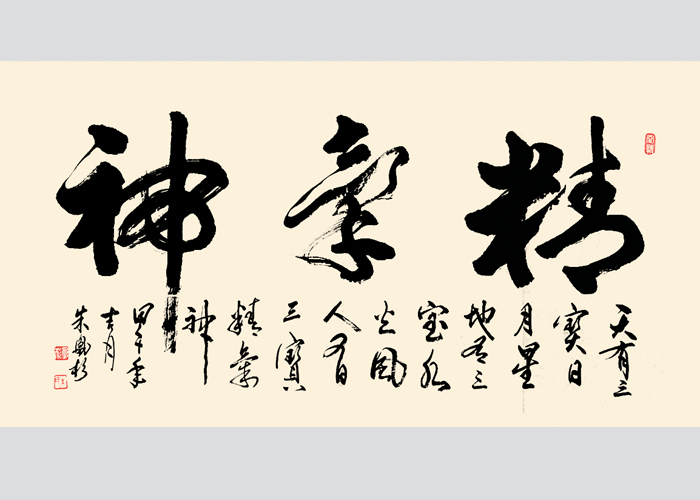 精氣神
天有三
寶日
月星
地有三
宝水
火風
人有
三寶
精氣
神
甲午年
吉月
朱鳳